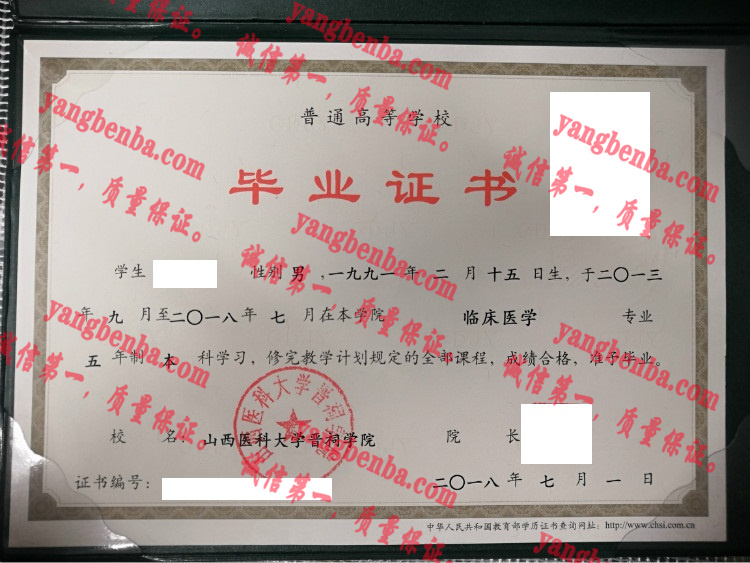 普通高等学校
毕业证书
学生 性别 男 ,一九九一年 二 月 十五 日生，于二〇一三
年 九 月至二〇一八年 七 月在本学院 临床医学 专业
五 年制 本 科学习，修完教学计划规定的全部课程，成绩合格，准予毕业。
山西医科大学晋祠学院
校 名：山西医科大学晋祠学院 院 长
证书编号： 二〇一八 年 七 月 一 日
中华人民共和国教育部学历证书查询网址：http://www.chsi.com.cn
yangbenba.com
诚信第一，质量保证。
yangbenba.com
诚信第一，质量保证。
yangbenba.com
诚信第一，质量保证。
yangbenba.com
诚信第一，质量保证。
yangbenba.com
诚信第一，质量保证。
yangbenba.com
诚信第一，质量保证。
yangbenba.com
诚信第一，质量保证。
yangbenba.com